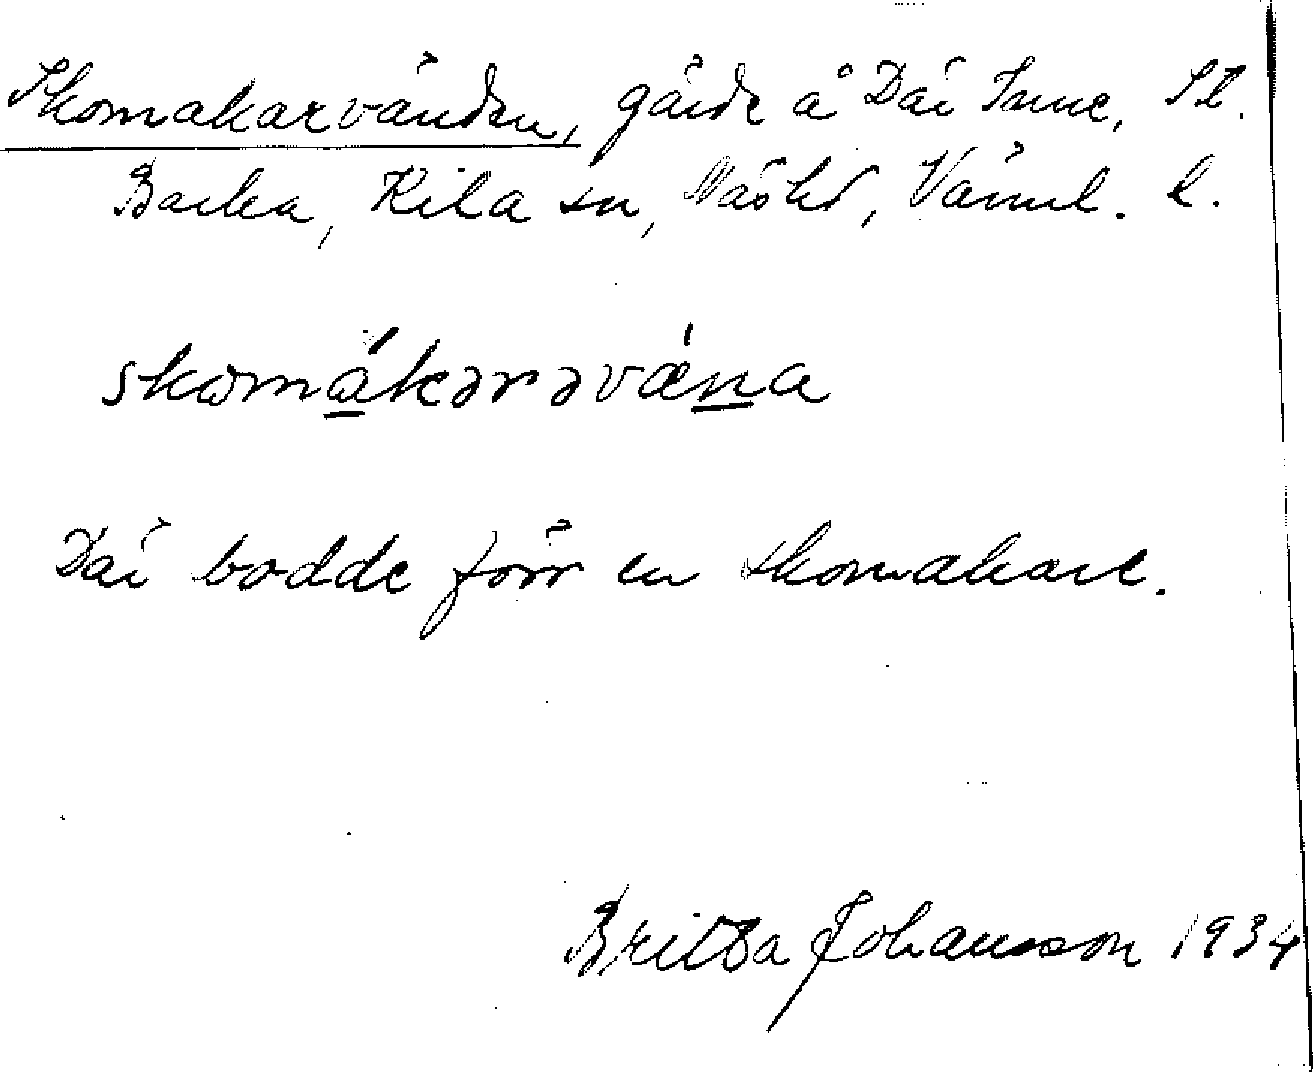 Skomakarvänden, gärde å Där Inne, St.
Backa, Kila sn, Näshd, Värml. l.
skωmákərəvǽna
Där bodde förr en skomakare.
Britta Johansson 1934